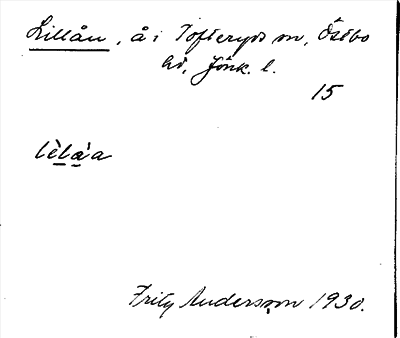 Lillån, å i Tofteryds sn, Östbo
hd, Jönk. l.
15
lèlàa
Fritz Andersson 1930.